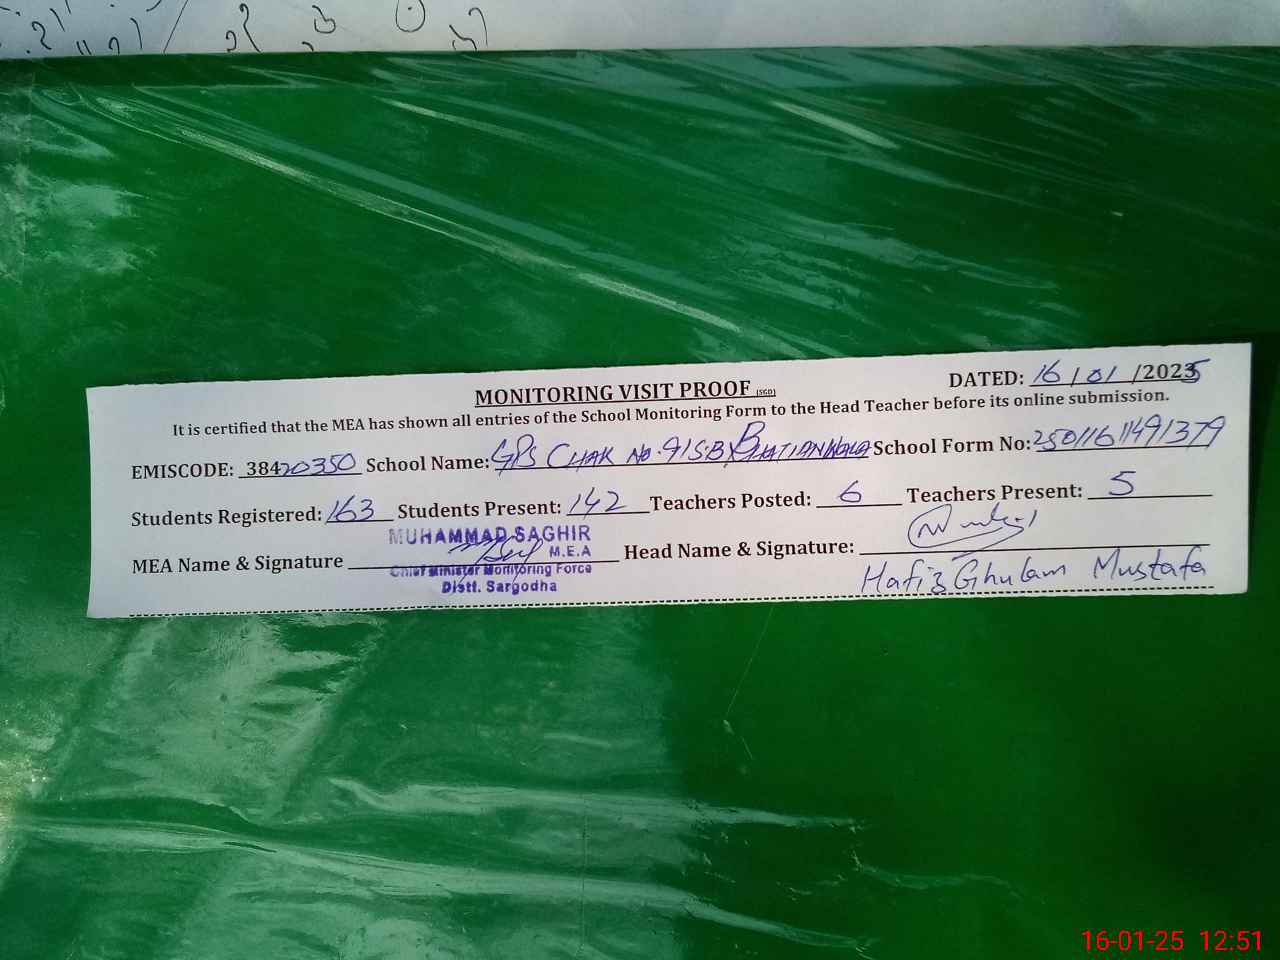 MONITORING VISIT PROOF (SGD)
DATED: 16/01/2025
It is certified that the MEA has shown all entries of the School Monitoring Form to the Head Teacher before its online submission.
EMISCODE: 38420350 School Name: GPS CHAK NO. 91S.B BHATIANWALA School Form No: 25011611491379
Students Registered: 163 Students Present: 142 Teachers Posted: 6 Teachers Present: 5
MUHAMMAD SAGHIR
M.E.A
MEA Name & Signature Head Name & Signature:
Chief Minister Monitoring Force
Distt. Sargodha
Hafiz Ghulam Mustafa
16-01-25 12:51